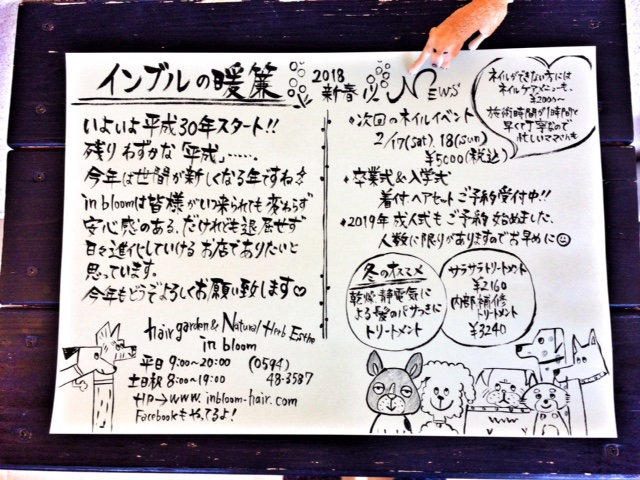 インブルの暖簾
いよいよ平成30年スタート!!
残りわずかな「平成」……
今年は世間が新しくなる年ですね
in bloomは皆様がいつ来られても変わらず
安心感のある、だけれども退屈せず
日々進化していける お店でありたいと
思っています。
今年もどうぞよろしくお願い致します♡
hair garden & Natural Herb Esthe
in bloom
平日 9:00〜20:00 (0594)
土日祝 8:00〜19:00 48-3587
HP→www.inbloom-hair.com
Facebookもやってるよ!
2018
新春 NEWS
ネイルができない方には
ネイルケアメニューも。
¥2000〜
施術時間が1時間と
早くて丁寧なので
忙しいママさんも
次回のネイルイベント
2/17(sat)、18(sun)
¥5000(税込)
卒業式&入学式
着付ヘアセットご予約受付中!!
2019年成人式もご予約始めました、
人数に限りがありますのでお早めに
冬のオススメ
乾燥・静電気に
よる髪のパサつきに
トリートメント
サラサラトリートメント
¥2160
内部補修
トリートメント
¥3240